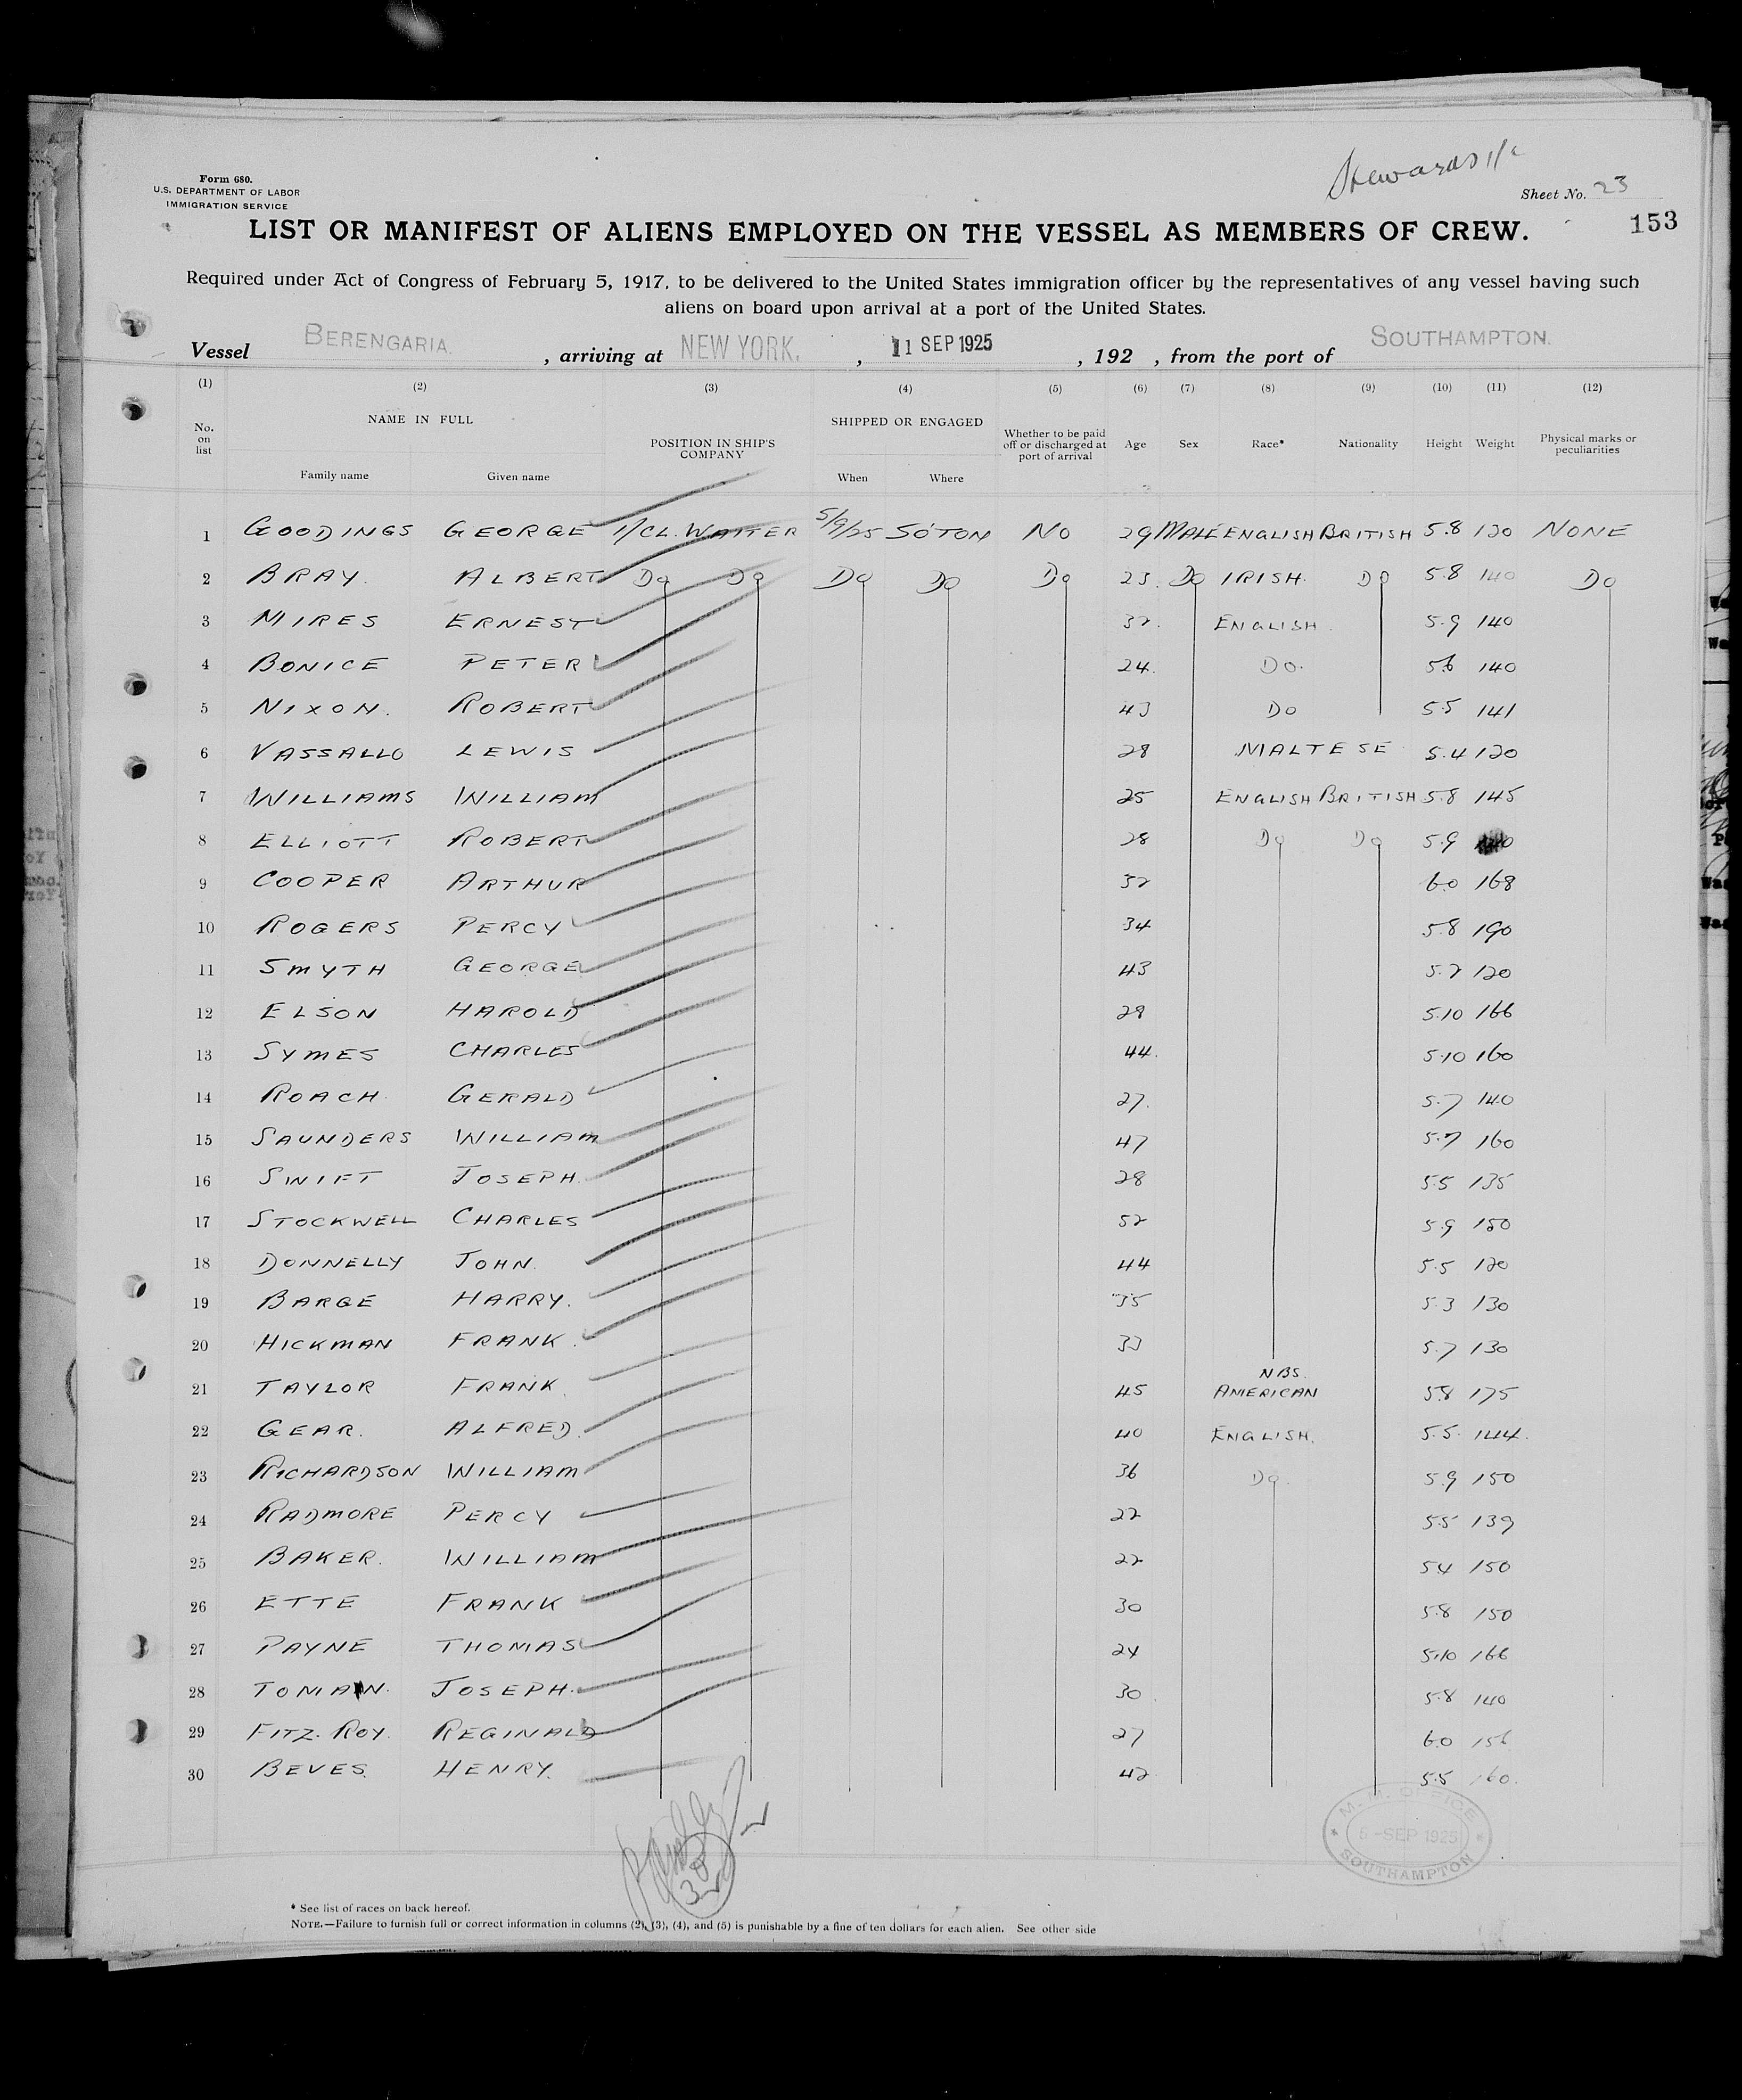 Stewards
Form 680.
U.S. DEPARTMENT OF LABOR
IMMIGRATION SERVICE
Sheet No. 23
153
LIST OR MANIFEST OF ALIENS EMPLOYED ON THE VESSEL AS MEMBERS OF CREW.
Required under Act of Congress of February 5, 1917, to be delivered to the United States immigration officer by the representatives of any vessel having such
aliens on board upon arrival at a port of the United States.
Vessel BERENGARIA, arriving at NEW YORK, 11 SEP 1925, 192 , from the port of SOUTHAMPTON.
(1) (2) (3) (4) (5) (6) (7) (8) (9) (10) (11) (12)
No. on list NAME IN FULL Family name Given name POSITION IN SHIP'S COMPANY SHIPPED OR ENGAGED When Where Whether to be paid off or discharged at port of arrival Age Sex Race* Nationality Height Weight Physical marks or peculiarities
1 GOODINGS GEORGE 1/CL. WAITER 5/9/25 SO'TON NO 29 MALE ENGLISH BRITISH 5.8 130 NONE
2 BRAY. ALBERT DO DO DO DO DO 23. DO IRISH. DO 5.8 140 DO
3 MIRES ERNEST 32. ENGLISH. 5.9 140
4 BONICE PETER 24. DO. 5.6 140
5 NIXON. ROBERT 43 DO 5.5 141
6 VASSALLO LEWIS 28 MALTESE 5.4 130
7 WILLIAMS WILLIAM 25 ENGLISH BRITISH 5.8 145
8 ELLIOTT ROBERT 28 DO DO 5.9
9 COOPER ARTHUR 32 6.0 168
10 ROGERS PERCY 34 5.8 190
11 SMYTH GEORGE 43 5.7 120
12 ELSON HAROLD 29 5.10 166
13 SYMES CHARLES 44. 5.10 160
14 ROACH GERALD 27. 5.7 140
15 SAUNDERS WILLIAM 47 5.7 160
16 SWIFT JOSEPH. 28 5.5 135
17 STOCKWELL CHARLES 52 5.9 150
18 DONNELLY JOHN. 44 5.5 120
19 BARGE HARRY. 35 5.3 130
20 HICKMAN FRANK. 33 5.7 130
21 TAYLOR FRANK. 45 NBS. AMERICAN 5.8 175
22 GEAR. ALFRED. 40 ENGLISH. 5.5. 144.
23 RICHARDSON WILLIAM 36 DO. 5.9 150
24 RADMORE PERCY 22 5.5 139
25 BAKER. WILLIAM 22 5.4 150
26 ETTE FRANK 30 5.8 150
27 PAYNE THOMAS 24 5.10 166
28 TOMAN. JOSEPH. 30 5.8 140
29 FITZ. ROY. REGINALD 27 6.0 156
30 BEVES. HENRY. 42 5.5 160.
30
M. M. OFFICE
5 - SEP 1925
SOUTHAMPTON
* See list of races on back hereof.
NOTE.—Failure to furnish full or correct information in columns (2), (3), (4), and (5) is punishable by a fine of ten dollars for each alien. See other side